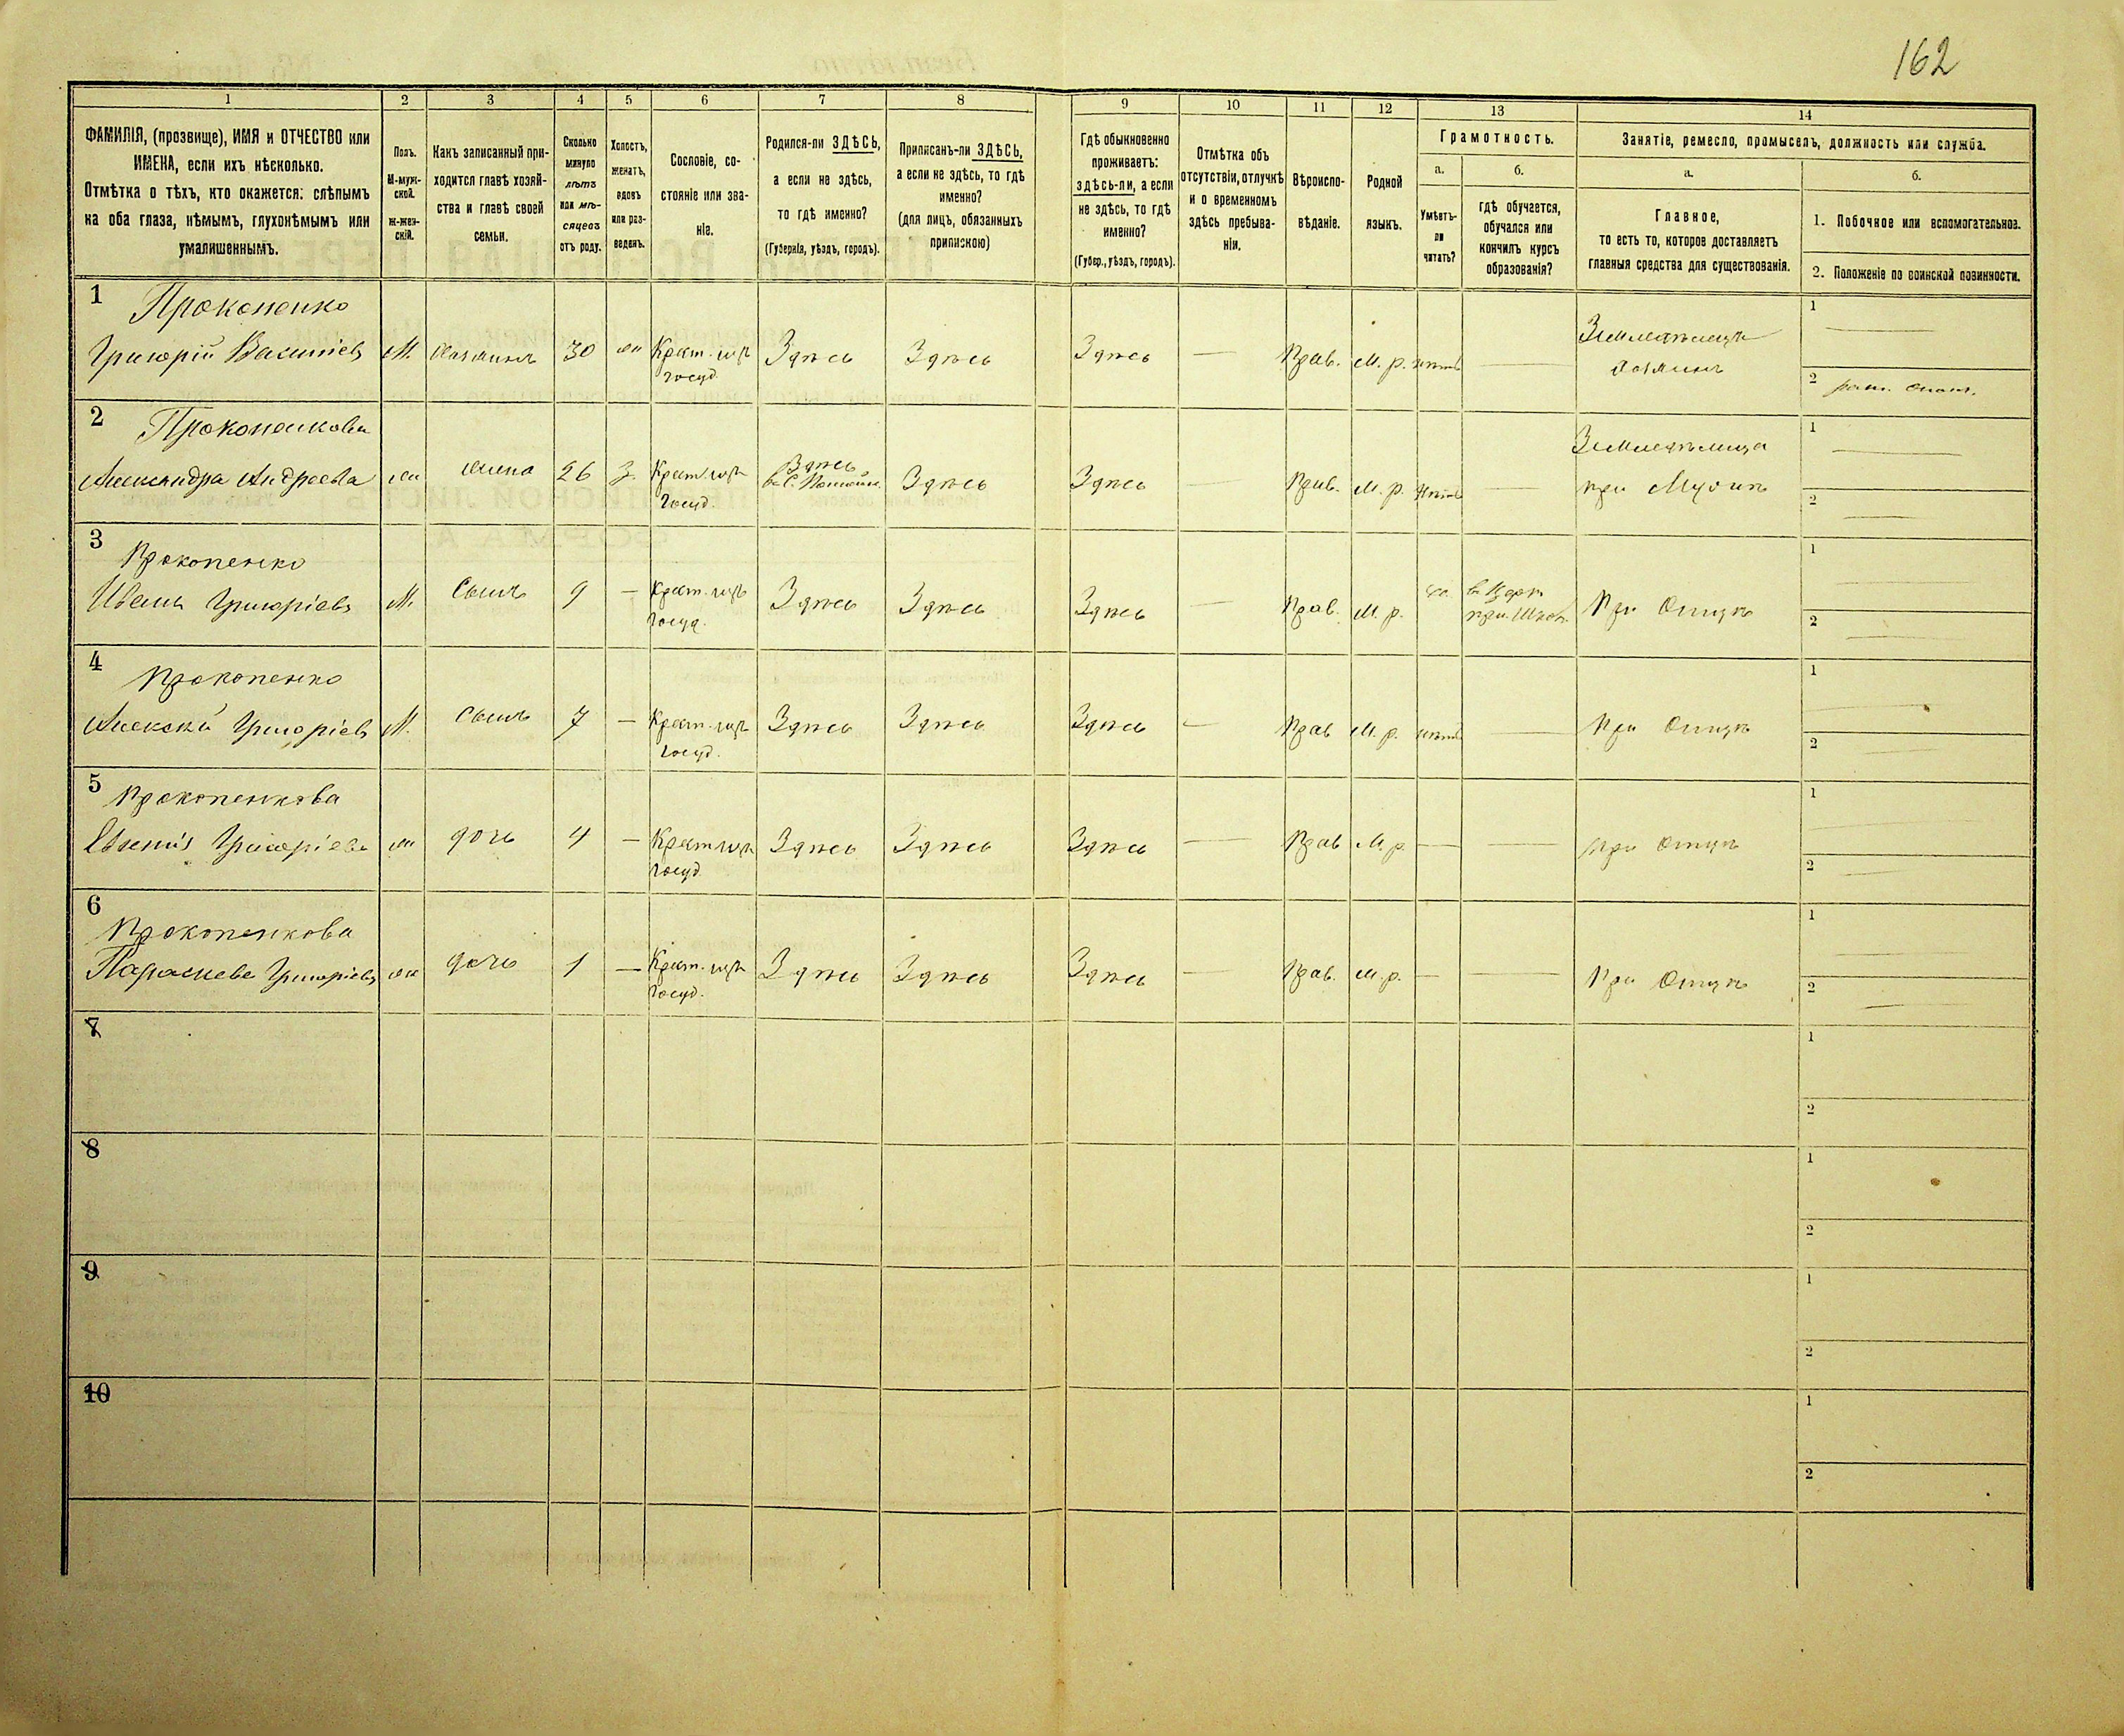 162
1 2 3 4 5 6 7 8 9 10 11 12 13 14
ФАМИЛІЯ, (прозвище), ИМЯ и ОТЧЕСТВО или
ИМЕНА, если ихъ нѣсколько.
Отмѣтка о тѣхъ, кто окажется: слѣпымъ
на оба глаза, нѣмымъ, глухонѣмымъ или
умалишеннымъ.
Полъ.
М-муж-
ской.
ж-жен-
скій.
Какъ записанный при-
ходится главѣ хозяй-
ства и главѣ своей
семьи.
Сколько
минуло
лѣтъ
или мѣ-
сяцевъ
отъ роду.
Холостъ,
женатъ,
вдовъ
или раз-
веденъ.
Сословіе, со-
стояніе или зва-
ніе.
Родился-ли ЗДѢСЬ,
а если не здѣсь,
то гдѣ именно?
(Губернія, уѣздъ, городъ).
Приписанъ-ли ЗДѢСЬ,
а если не здѣсь, то гдѣ
именно?
(для лицъ, обязанныхъ
припискою)
Гдѣ обыкновенно
проживаетъ:
здѣсь-ли, а если
не здѣсь, то гдѣ
именно?
(Губер., уѣздъ, городъ).
Отмѣтка объ
отсутствіи, отлучкѣ
и о временномъ
здѣсь пребыва-
ніи.
Вѣроиспо-
вѣданіе.
Родной
языкъ.
Грамотность.
а.
Умѣетъ-
ли
читать?
б.
гдѣ обучается,
обучался или
кончилъ курсъ
образованія?
Занятіе, ремесло, промыселъ, должность или служба.
а.
Главное,
то есть то, которое доставляетъ
главныя средства для существованія.
б.
1. Побочное или вспомогательное.
2. Положеніе по воинской повинности.
1 Прокопенко 1
Григорій Василіевъ М. хазяинъ 30 жн Крест. изъ Здѣсь Здѣсь Здѣсь — Прав. М. р. нѣтъ — Земледѣлецъ —
госуд. хазяинъ 2
2 Прокопенкова 1
Александра Андреева жен жена 26 з. Крест. изъ Здѣсь Здѣсь Здѣсь — Прав. М. р. нѣтъ — Земледѣлица —
госуд. при Мужѣ 2 —
3 Прокопенко 1 —
Иванъ Григоріевъ М. Сынъ 9 — Крест. изъ Здѣсь Здѣсь Здѣсь — Прав. М. р. въ Церк.
госуд. при. Школ. При Отцѣ 2 —
4 Прокопенко 1 —
Алексѣй Григоріевъ М. Сынъ 7 — Крест. изъ Здѣсь Здѣсь Здѣсь — Прав М. р. нѣтъ — При Отцѣ
госуд. 2 —
5 Прокопенкова 1 —
Евгенія Григоріева жн дочь 4 — Крест изъ Здѣсь Здѣсь Здѣсь — Прав М. р. — — При Отцѣ
госуд 2 —
6 Прокопенкова 1 —
Параскева Григоріева жн дочь 1 — Крест. изъ Здѣсь Здѣсь Здѣсь — Прав. М. р. — — При Отцѣ
госуд. 2 —
7 1
2
8 1
2
9 1
2
10 1
2